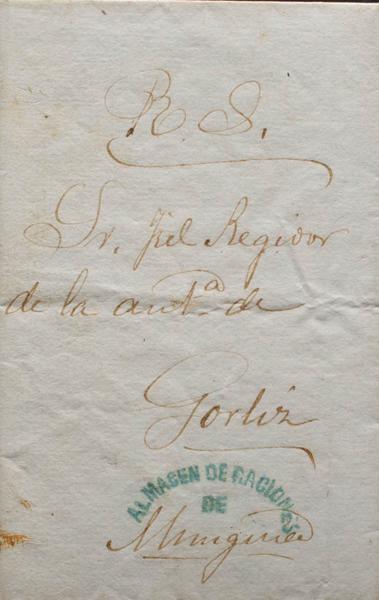 R. S.
Sr. Fiel Regidor
de la antª. de
Gorliz
ALMACEN DE RACIONES
DE
Munguia